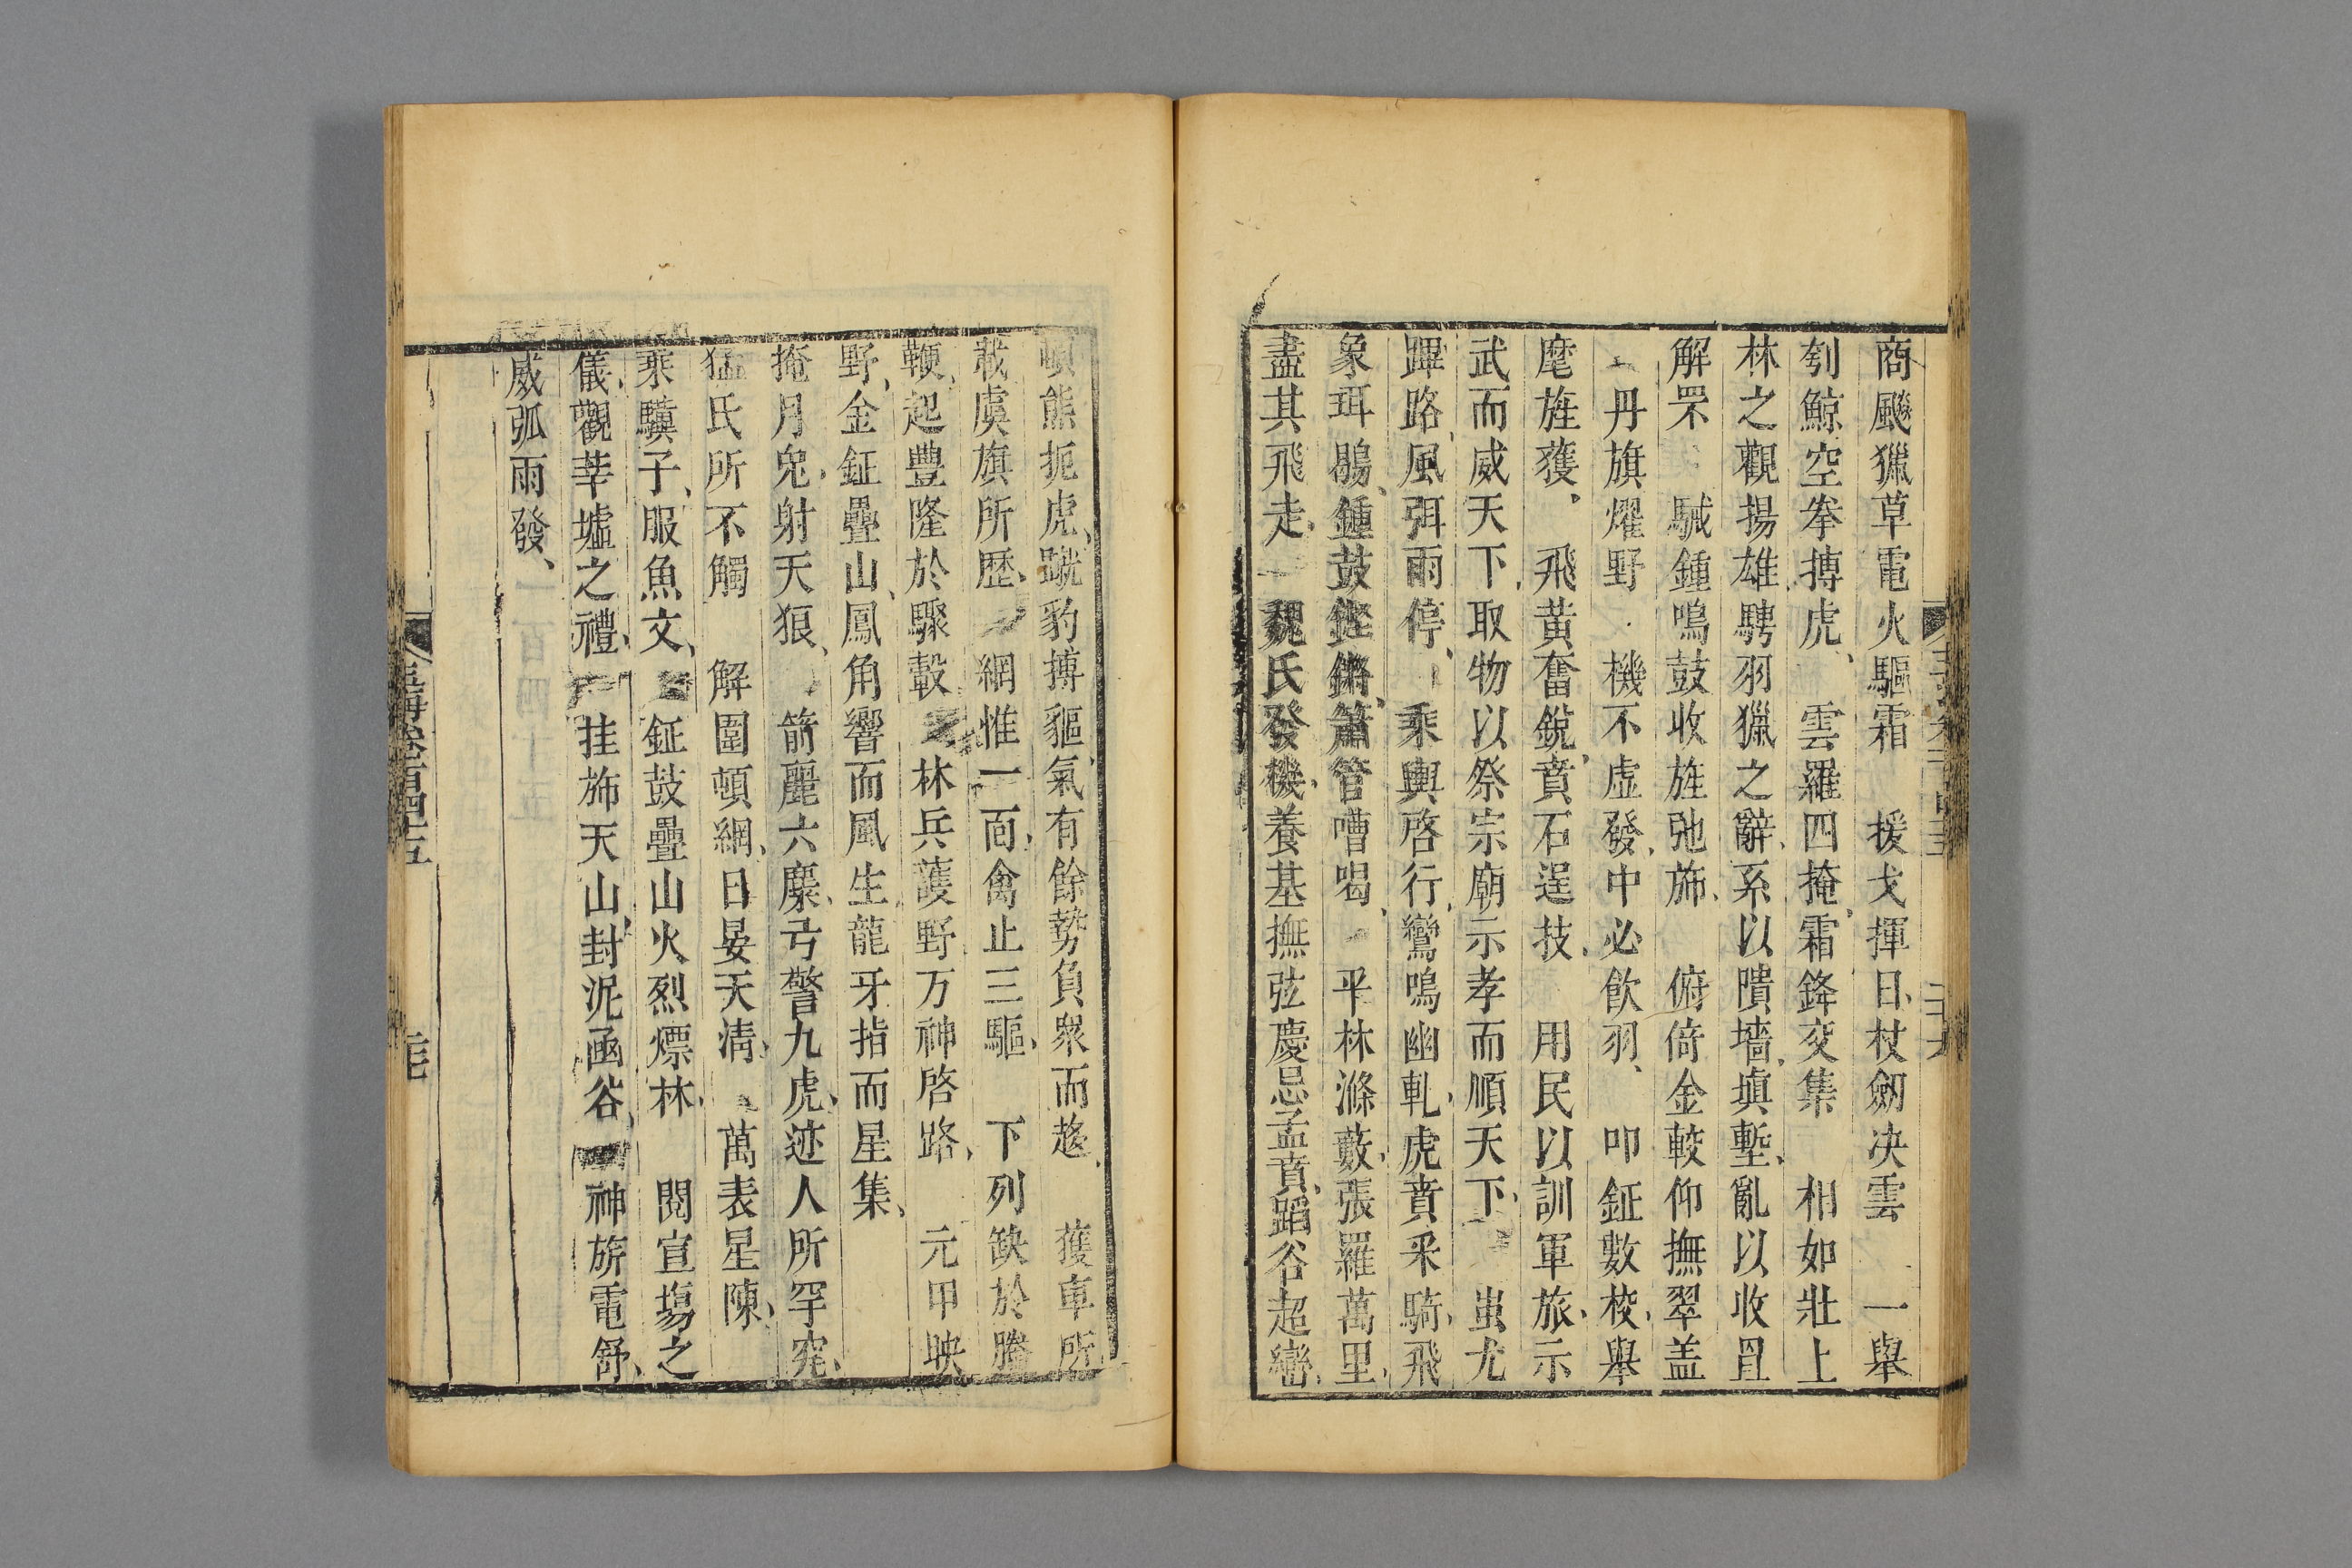 商颷獵草電火驅霜　援戈揮日、杖劒決雲　一舉
刳鯨空拳搏虎、　雲羅四掩、霜鋒交集　相如壯上
林之觀揚雄騁羽獵之辭、系以隤墻、塡塹、亂以收罝
解罘　駴鍾鳴鼓收旌弛斾、　俯倚金較仰撫翠盖
丹旗燿野　機不虛發、中必飮羽、　叩鉦數校、舉
麾旌獲、　飛黃奮銳、賁石逞技、　用民以訓軍旅、示
武而威天下、取物以祭宗廟示孝而順天下、　蚩尤
蹕路、風弭雨停、　乘輿啓行、鸞鳴幽軋、虎賁釆騎、飛
象珥鶡、鍾鼓鏗鏘、簫管嘈喝、　平林滌藪、張羅萬里、
盡其飛走、　魏氏發機、養基撫弦慶忌孟賁、蹈谷超巒、
頓熊扼虎、蹴豹搏貙、氣有餘勢負衆而趍、　獲車所
載虞旗所歷、　網惟一面、禽止三驅、　下列缺於騰
鞭、起豐隆於驟轂　林兵護野、万神啓路、　元甲映
野、金鉦疊山、鳳角響而風生、龍牙指而星集、
掩月兔、射天狼、　箭麗六麋、弓警九虎、迹人所罕究、
猛氏所不觸　解圍頓網、日晏天淸、　萬表星陳、
乘驥子、服魚文、　鉦鼓疊山火烈熛林、　閱宣塲之
儀、觀莘墟之禮、　挂斾天山、封泥函谷、　神旂電舒、
威弧雨發、